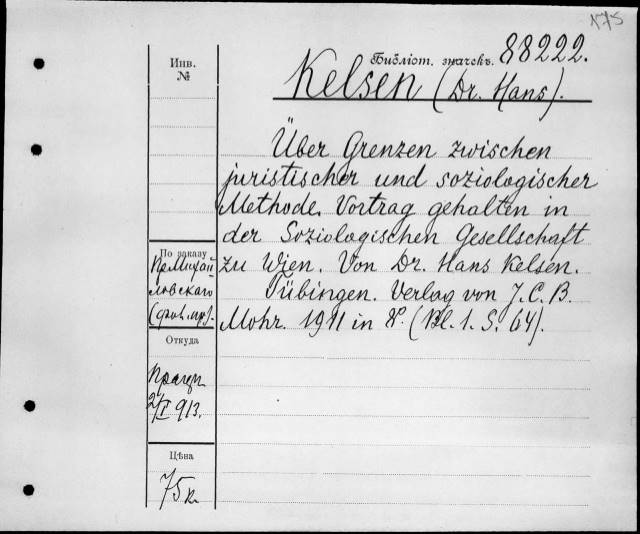 175
Библіот. значекъ. 88222.
Инв.
№
Kelsen (Dr. Hans).
Über Grenzen zwischen
juristischer und soziologischer
Methode. Vortrag gehalten in
der Soziologischen Gesellschaft
zu Wien. Von Dr. Hans Kelsen.
Tübingen. Verlag von J. C. B.
Mohr. 1911 in 8º. (Bl. 1. S. 64).
По заказу
Пр. Михай
ловскаго
Откуда
913.
Цѣна
75 к.